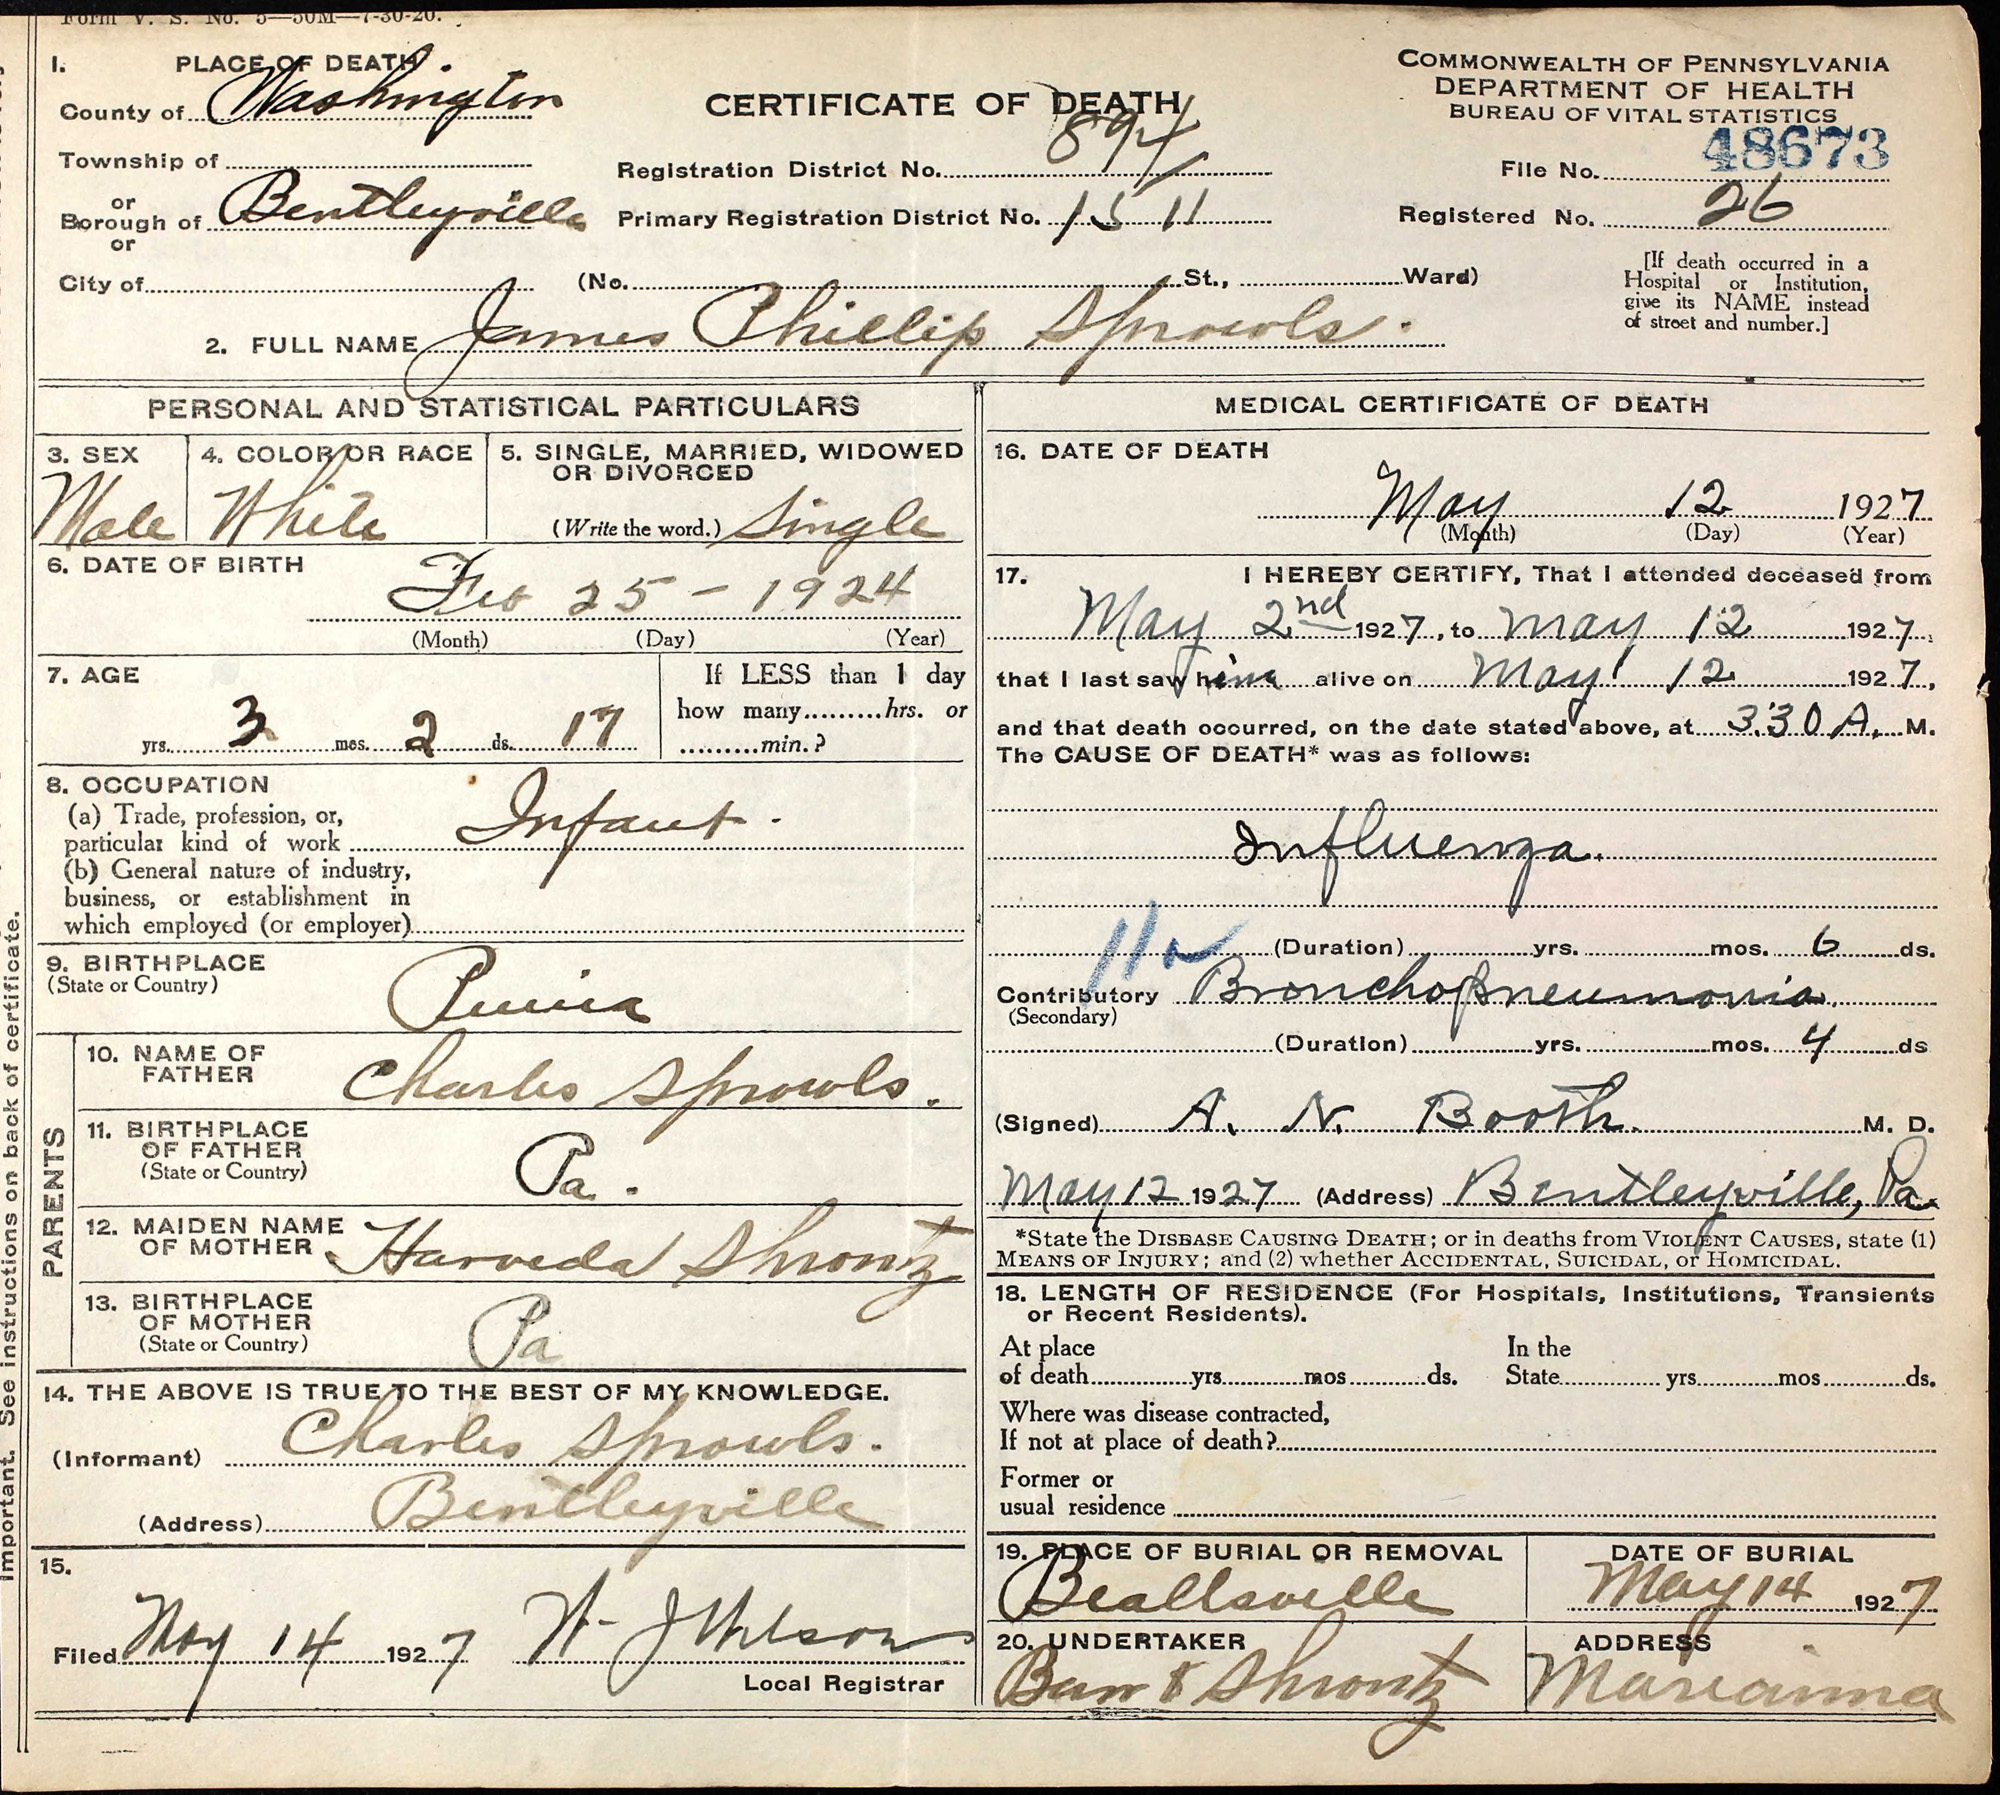 Form V. S. No. 5—50M—7-30-20.
1. PLACE OF DEATH.
County of Washington
Township of
or
Borough of Bentleyville
or
City of
CERTIFICATE OF DEATH
Registration District No. 894
Primary Registration District No. 1511
(No. St., Ward)
COMMONWEALTH OF PENNSYLVANIA
DEPARTMENT OF HEALTH
BUREAU OF VITAL STATISTICS
File No. 48673
Registered No. 26
[If death occurred in a
Hospital or Institution,
give its NAME instead
of street and number.]
2. FULL NAME James Phillip Sprowls.
PERSONAL AND STATISTICAL PARTICULARS
3. SEX
Male
4. COLOR OR RACE
White
5. SINGLE, MARRIED, WIDOWED
OR DIVORCED
(Write the word.) Single
6. DATE OF BIRTH
Feb 25 - 1924
(Month) (Day) (Year)
7. AGE
yrs. 3 mos. 2 ds. 17
If LESS than 1 day
how many.........hrs. or
.........min.?
8. OCCUPATION
(a) Trade, profession, or,
particular kind of work Infant.
(b) General nature of industry,
business, or establishment in
which employed (or employer)
9. BIRTHPLACE
(State or Country)
PARENTS
10. NAME OF
FATHER Charles Sprowls.
11. BIRTHPLACE
OF FATHER
(State or Country) Pa.
12. MAIDEN NAME
OF MOTHER Harveda Shrontz
13. BIRTHPLACE
OF MOTHER
(State or Country) Pa
14. THE ABOVE IS TRUE TO THE BEST OF MY KNOWLEDGE.
(Informant) Charles Sprowls.
(Address) Bentleyville
15.
Filed May 14 1927 W. J Wilson
Local Registrar
MEDICAL CERTIFICATE OF DEATH
16. DATE OF DEATH
May 12 1927
(Month) (Day) (Year)
17. I HEREBY CERTIFY, That I attended deceased from
May 2nd 1927, to May 12 1927,
that I last saw him alive on May 12 1927,
and that death occurred, on the date stated above, at 3:30 A. M.
The CAUSE OF DEATH* was as follows:
Influenza.
(Duration) yrs. mos. 6 ds.
Contributory Bronchopneumonia
(Secondary)
(Duration) yrs. mos. 4 ds
(Signed) A. N. Booth. M. D.
May 12 1927 (Address) Bentleyville, Pa.
*State the DISEASE CAUSING DEATH; or in deaths from VIOLENT CAUSES, state (1)
MEANS OF INJURY; and (2) whether ACCIDENTAL, SUICIDAL, or HOMICIDAL.
18. LENGTH OF RESIDENCE (For Hospitals, Institutions, Transients
or Recent Residents).
At place
of death yrs mos ds.
In the
State yrs mos ds.
Where was disease contracted,
If not at place of death?
Former or
usual residence
19. PLACE OF BURIAL OR REMOVAL
Beallsville
DATE OF BURIAL
May 14 1927
20. UNDERTAKER
& Shrontz
ADDRESS
Marianna
Important. See instructions on back of certificate.